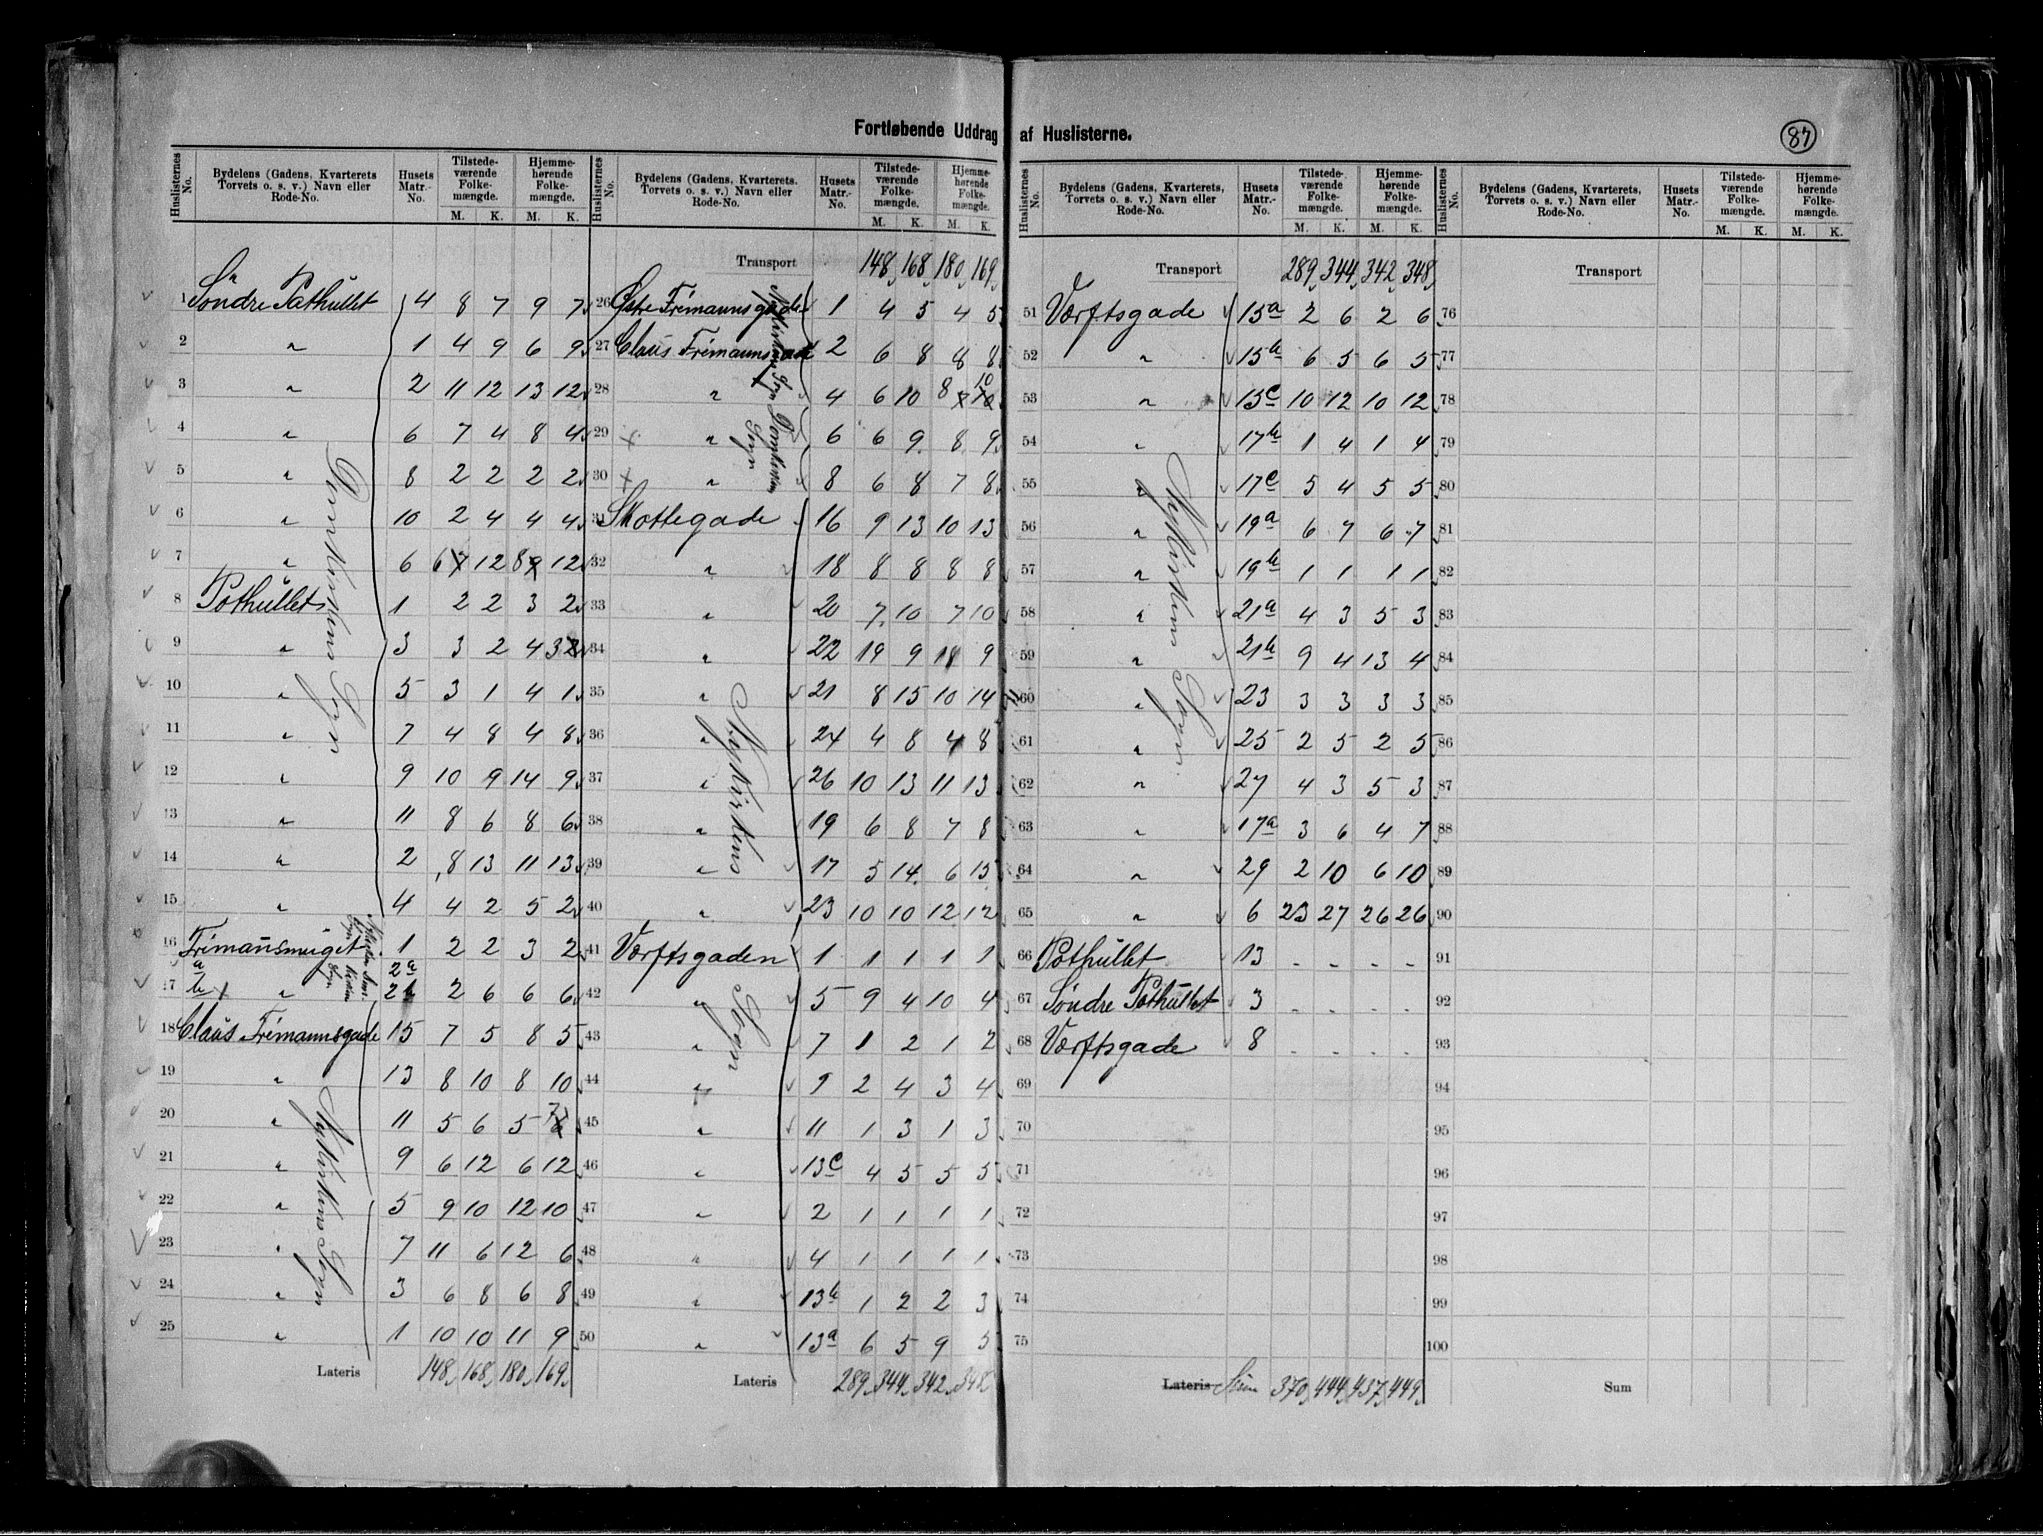 Fortløbende Uddrag af Huslisterne.
87
Huslisternes No. | Bydelens (Gadens, Kvarterets Torvets o. s. v.) Navn eller Rode-No. | Husets Matr.-No. | Tilstedeværende Folkemængde. M. K. | Hjemmehørende Folkemængde. M. K.
1 Söndre Pathullet 4 8 7 9 7
2 " 1 4 9 6 9
3 " 2 11 12 13 12
4 " 6 7 4 8 4
5 " 8 2 2 2 2
6 " 10 2 4 4 4
7 " 6 6 7 12 8 9 12
8 Pothullet 1 2 2 3 2
9 " 3 3 2 4 3 2
10 " 5 3 1 4 1
11 " 7 4 8 4 8
12 " 9 10 9 14 9
13 " 11 8 6 8 6
14 " 2 8 13 11 13
15 " 4 4 2 5 2
16 Frimansmuget 1 2 2 3 2
a 2a
17 b x " 2b 2 6 6 6
18 Claus Frimannsgade 15 7 5 8 5
19 " 13 8 10 8 10
20 " 11 5 6 5 7 6
21 " 9 6 12 6 12
22 " 5 9 10 12 10
23 " 7 11 6 12 6
24 " 3 6 8 6 8
25 " 1 10 10 11 9
Lateris 148 168 180 169
Domkirkens Sogn
Nykirkens Sogn
Huslisternes No. | Bydelens (Gadens, Kvarterets. Torvets o. s. v.) Navn eller Rode-No. | Husets Matr.-No. | Tilstedeværende Folkemængde. M. K. | Hjemmehørende Folkemængde. M. K.
Transport 148 168 180 169
26 Østre Frimannsgade 1 4 5 4 5
27 Claus Frimannsgade 2 6 8 8 8
28 " 4 6 10 8 10
29 x " 6 6 9 8 9
30 x " 8 6 8 7 8
31 Skottegade 16 9 13 10 13
32 " 18 8 8 8 8
33 " 20 7 10 7 10
34 " 22 19 9 18 9
35 " 21 8 15 10 14
36 " 24 4 8 4 8
37 " 26 10 13 11 13
38 " 19 6 8 7 8
39 " 17 5 14 6 15
40 " 23 10 10 12 12
41 Værftsgaden 1 1 1 1 1
42 " 5 9 4 10 4
43 " 7 1 2 1 2
44 " 9 2 4 3 4
45 " 11 1 3 1 3
46 " 13c 4 5 5 5
47 " 2 1 1 1 1
48 " 4 1 1 1 1
49 " 13b 1 2 2 3
50 " 13a 6 5 9 5
Lateris 289 344 342 348
Nykirkens Sogn
Domkirkens Sogn
Nykirkens Sogn
Huslisternes No. | Bydelens (Gadens, Kvarterets, Torvets o. s. v.) Navn eller Rode-No. | Husets Matr.-No. | Tilstedeværende Folkemængde. M. K. | Hjemmehørende Folkemængde. M. K.
Transport 289 344 342 348
51 Værftsgade 15a 2 6 2 6
52 " 15b 6 5 6 5
53 " 15c 10 12 10 12
54 " 17b 1 4 1 4
55 " 17c 5 4 5 5
56 " 19a 6 7 6 7
57 " 19b 1 1 1 1
58 " 21a 4 3 5 3
59 " 21b 9 4 13 4
60 " 23 3 3 3 3
61 " 25 2 5 2 5
62 " 27 4 3 5 3
63 " 17a 3 6 4 7
64 " 29 2 10 6 10
65 " 6 23 27 26 26
66 Pothullet 13 - - - -
67 Søndre Pothullet 3 - - - -
68 Værftsgade 8 - - - -
69
70
71
72
73
74
75
Lateris Sum 370 444 437 449
Nykirkens Sogn
Huslisternes No. | Bydelens (Gadens, Kvarterets, Torvets o. s. v.) Navn eller Rode-No. | Husets Matr.-No. | Tilstedeværende Folkemængde. M. K. | Hjemmehørende Folkemængde. M. K.
Transport
76
77
78
79
80
81
82
83
84
85
86
87
88
89
90
91
92
93
94
95
96
97
98
99
100
Sum